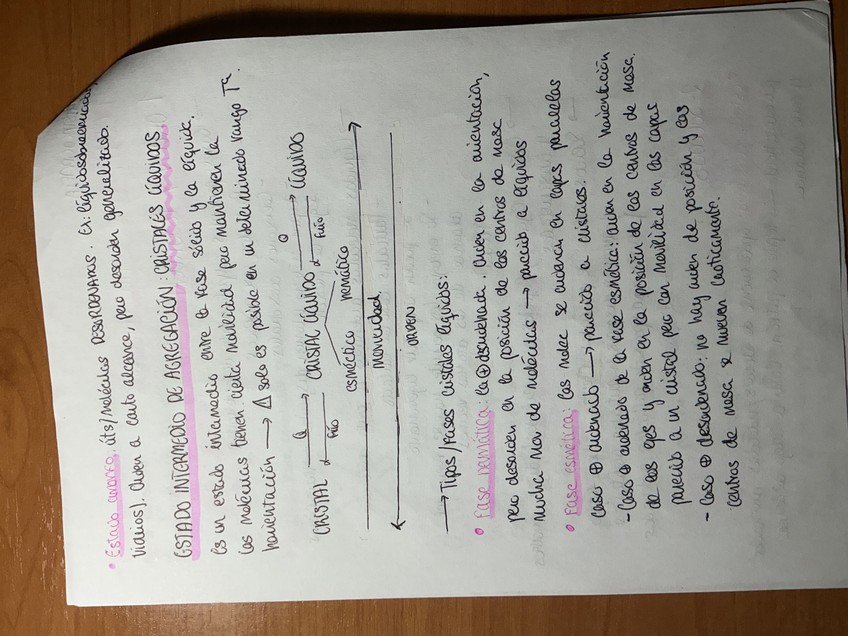 • Estado amorfo: áts/moléculas DESORDENADAS. Ex: líquidos sobreenfriados,
vidrios). Orden a corto alcance, pero desorden generalizado.
ESTADO INTERMEDIO DE AGREGACIÓN: CRISTALES LÍQUIDOS
Es un estado intermedio entre la fase sólido y la líquida.
las moléculas tienen cierta movilidad pero mantienen la
horientación → Δ solo es posible en un determinado rango Tª.
CRISTAL Q frío CRISTAL LÍQUIDO Q frío LÍQUIDO
esméctico nemático
movilidad
ORDEN
→ Tipos/Fases cristales líquidos:
• Fase nemática: la ⊕ desordenada. Orden en la orientación,
pero desorden en la posición de los centros de masa
mucha mov de moléculas → parecido a líquidos
• Fase esmética: las molec se ordenan en capas paralelas
caso ⊕ ordenado → parecido a cristales.
- Caso ⊕ ordenado de la fase esmética: orden en la horientación
de los ejes y orden en la posición de los centros de masa.
parecido a un cristal pero con movilidad en las capas
- Caso ⊕ desordenado: no hay orden de posición y los
centros de masa se mueven caóticamente.